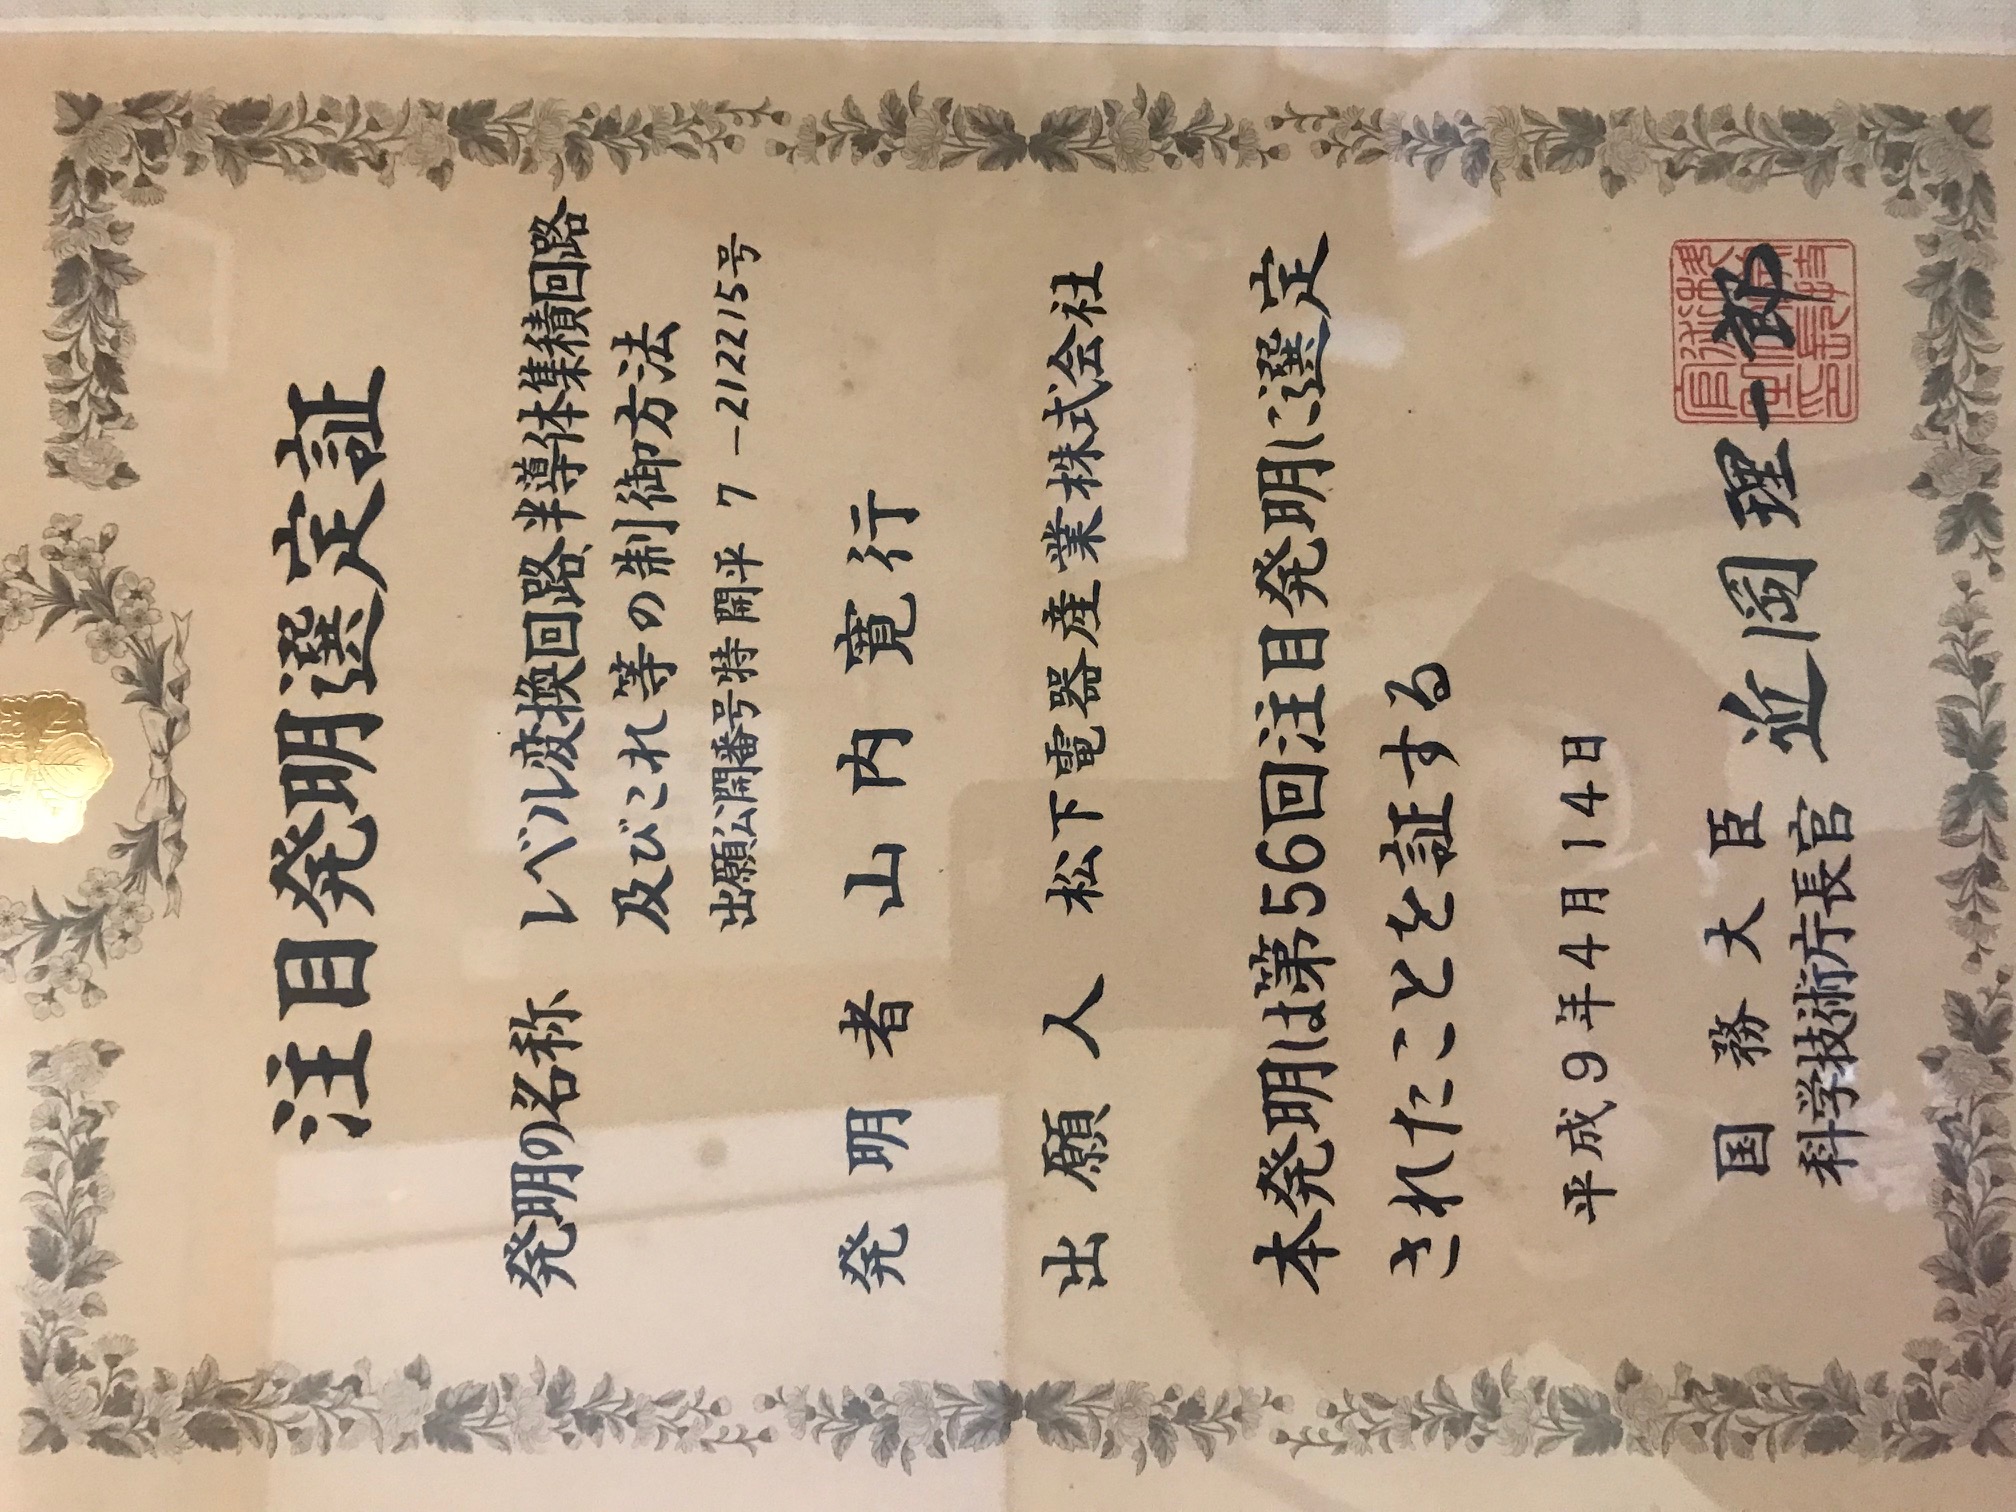 注目発明選定証
発明の名称 レベル変換回路、半導体集積回路
及びこれ等の制御方法
出願公開番号特開平7-212215号
発明者 山内寛行
出願人 松下電器産業株式会社
本発明は第56回注目発明に選定
されたことを証する
平成9年4月14日
国務大臣
科学技術庁長官 近岡理一郎